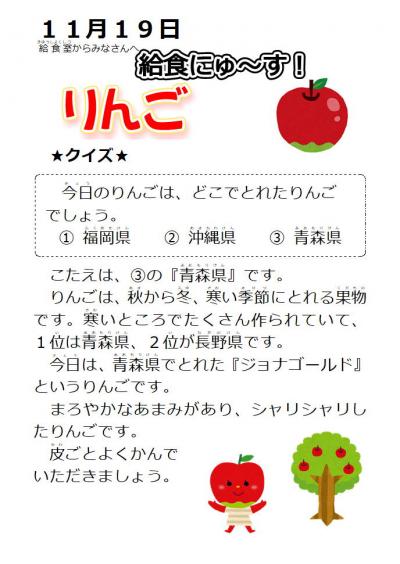 １１月１９日
給食室からみなさんへ
給食にゅ～す！
りんご
★クイズ★
今日のりんごは、どこでとれたりんご
でしょう。
① 福岡県　② 沖縄県　③ 青森県
こたえは、③の『青森県』です。
りんごは、秋から冬、寒い季節にとれる果物
です。寒いところでたくさん作られていて、
１位は青森県、２位が長野県です。
今日は、青森県でとれた『ジョナゴールド』
というりんごです。
まろやかなあまみがあり、シャリシャリし
たりんごです。
皮ごとよくかんで
いただきましょう。